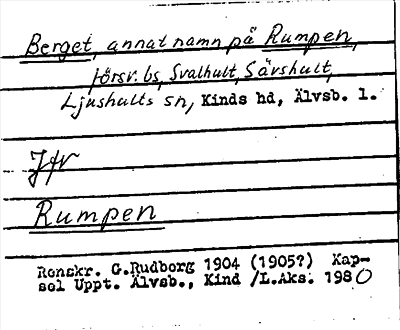 Berget, annat namn på Rumpen,
försv. bs, Svalhult, Sävshult,
Ljushults sn, Kinds hd, Älvsb. l.
Jfr
Rumpen
Renskr. G.Rudborg 1904 (1905?) Kap-
sel Uppt. Älvsb., Kind /L.Aks. 1980